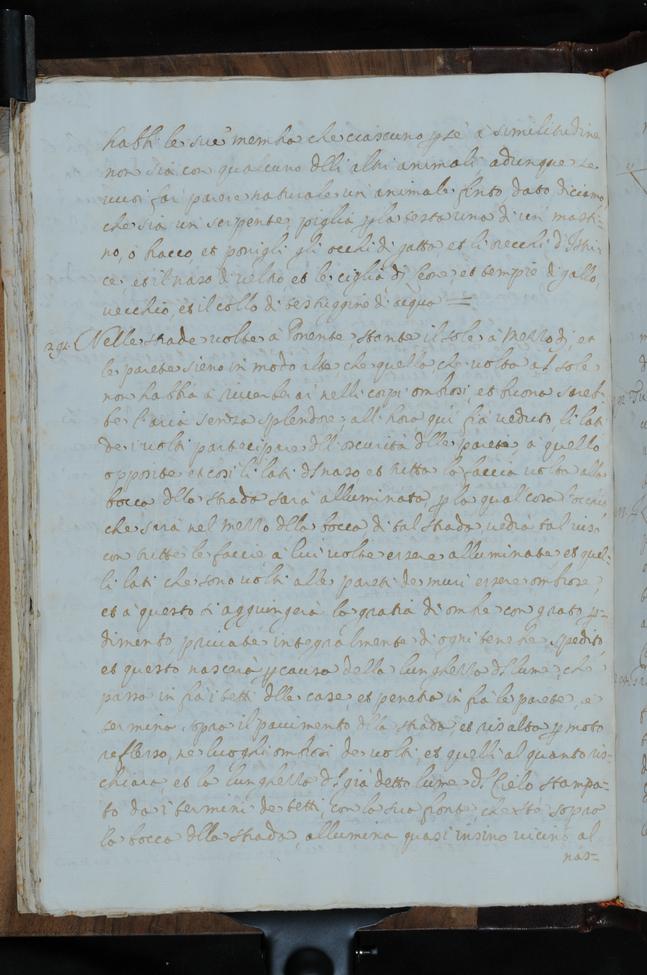 habbi le sue membra che ciascuno p se a similitudine
non sia con qualcuno delli altri animali adunque se
vuoi far parere naturale un animale finto, dato diciamo
che sia un serpente, piglia p la testa una di un masti-
no, o bracco, et ponigli gli occhi di gatta, et li orecchi d'Istri-
ce, et il naso di veltro et le ciglia di leone, et tempie di gallo
vecchio, et il collo di testuggine d'acqua =
291. Nelle strade volte a Ponente stante il sole a mezzo di, et
le parete sieno in modo alte, che quella che volta al sole
non habbia a riverberar nelli corpi ombrosi, et buona sareb-
be l'aria senza splendore, all'hora qui fia veduto li lati
de i volti participare dll'oscurità dlle parete, a quello
opposite et cosi li lati dl naso et tutta la faccia volta alla
bocca dlla strada sarà alluminata, p la qual cosa l'occhio
che sarà nel mezzo dlla bocca di tal strada vedrà tal viso
con tutte le faccie a lui volte essere alluminate et quel-
li lati che sono volti alle pareti de muri essere ombrose,
et a questo si aggiungerà la gratia di ombre con grato p-
dimento private integralmente di ogni tenebre spedito
et questo nascerà p causa della lunghezza dl lume, che
passa in frà i tetti dlle case, et penetra in frà le parete, e
termina sopra il pavimento dlla strada et risalta p moto
reflesso, ne luoghi ombrosi de volti, et quelli al quanto ris-
chiara, et la lunghezza dl già detto lume dl Cielo stampa-
to da i termini de tetti, con la sua fronte che sta sopra
la bocca dlla strada, allumina quasi insino vicino al
nas-